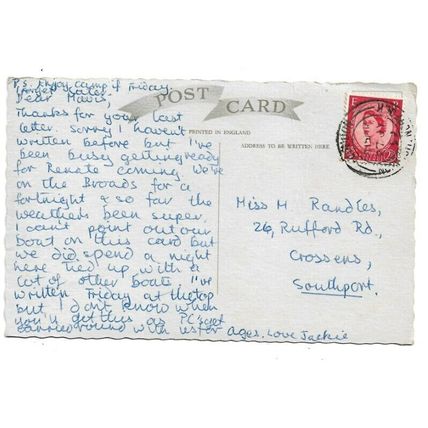 P.S. Enjoy camp if Friday
forget later
Dear Mavis,
Thanks for your last
letter. Sorry I haven't
written before but I've
been busy getting ready
for Renate coming. We've
on the Broads for a
fortnight & so far the
weather's been super.
I can't point out our
boat on this card but
we did spend a night
here tied up with a
lot of other boats. I've
written Friday at the top
but I don't know when
you'll get this as PC's get
carried round with us for ages. Love Jackie
POST CARD
PRINTED IN ENGLAND
ADDRESS TO BE WRITTEN HERE
Miss M Randles,
26, Rufford Rd.,
Crossens,
Southport.